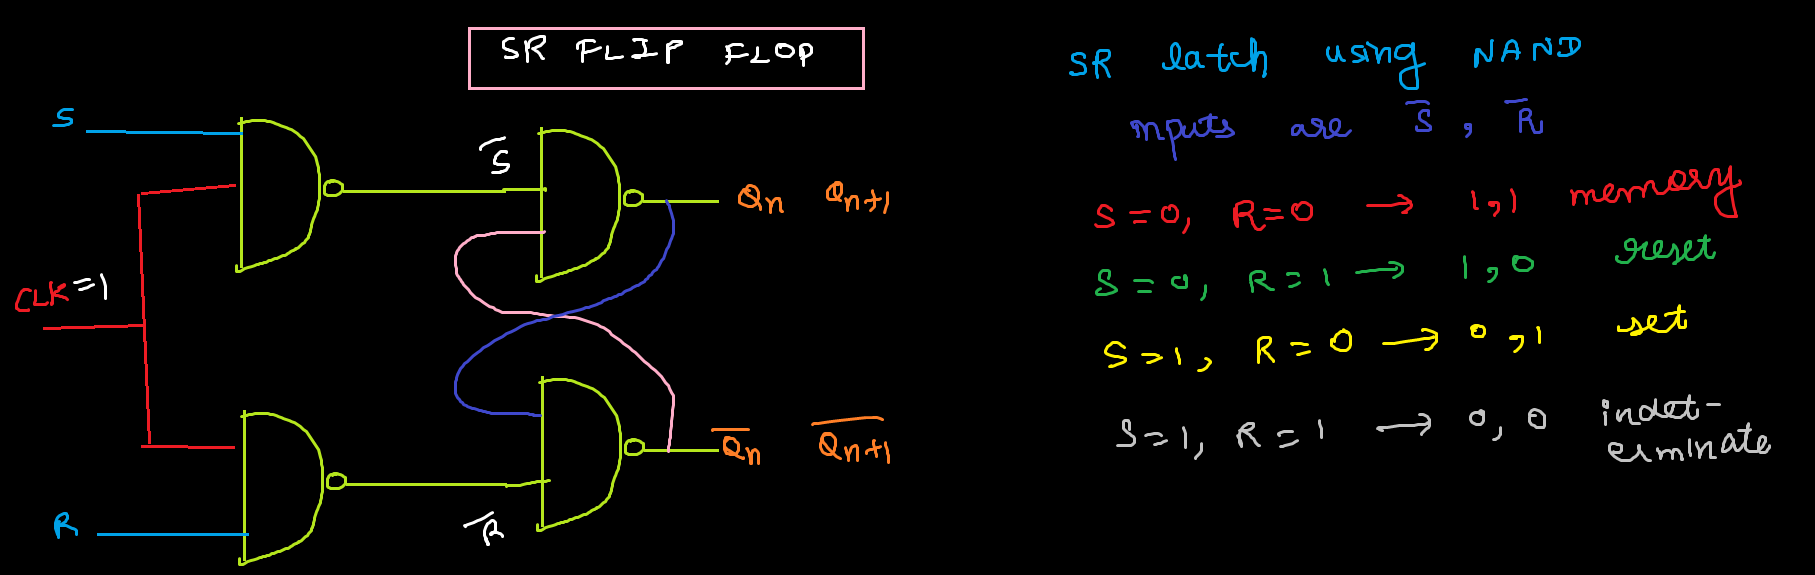 SR FLIP FLOP
S
S̅
Qn Qn+1
CLK=1
Q̅n Q̅n+1
R
R̅
SR latch using NAND
inputs are S̅, R̅
S=0, R=0 → 1,1 memory
S=0, R=1 → 1,0 reset
S=1, R=0 → 0,1 set
S=1, R=1 → 0,0 indet-
erminate